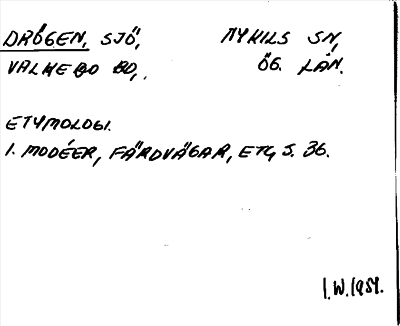 DRÖGEN, SJÖ, NYKILS SN,
VALKEBO BD,. ÖG. LÄN.
ETYMOLOGI.
I. MODÉER, FÄRDVÄGAR, ETC, S. 36.
I.W. 1954.